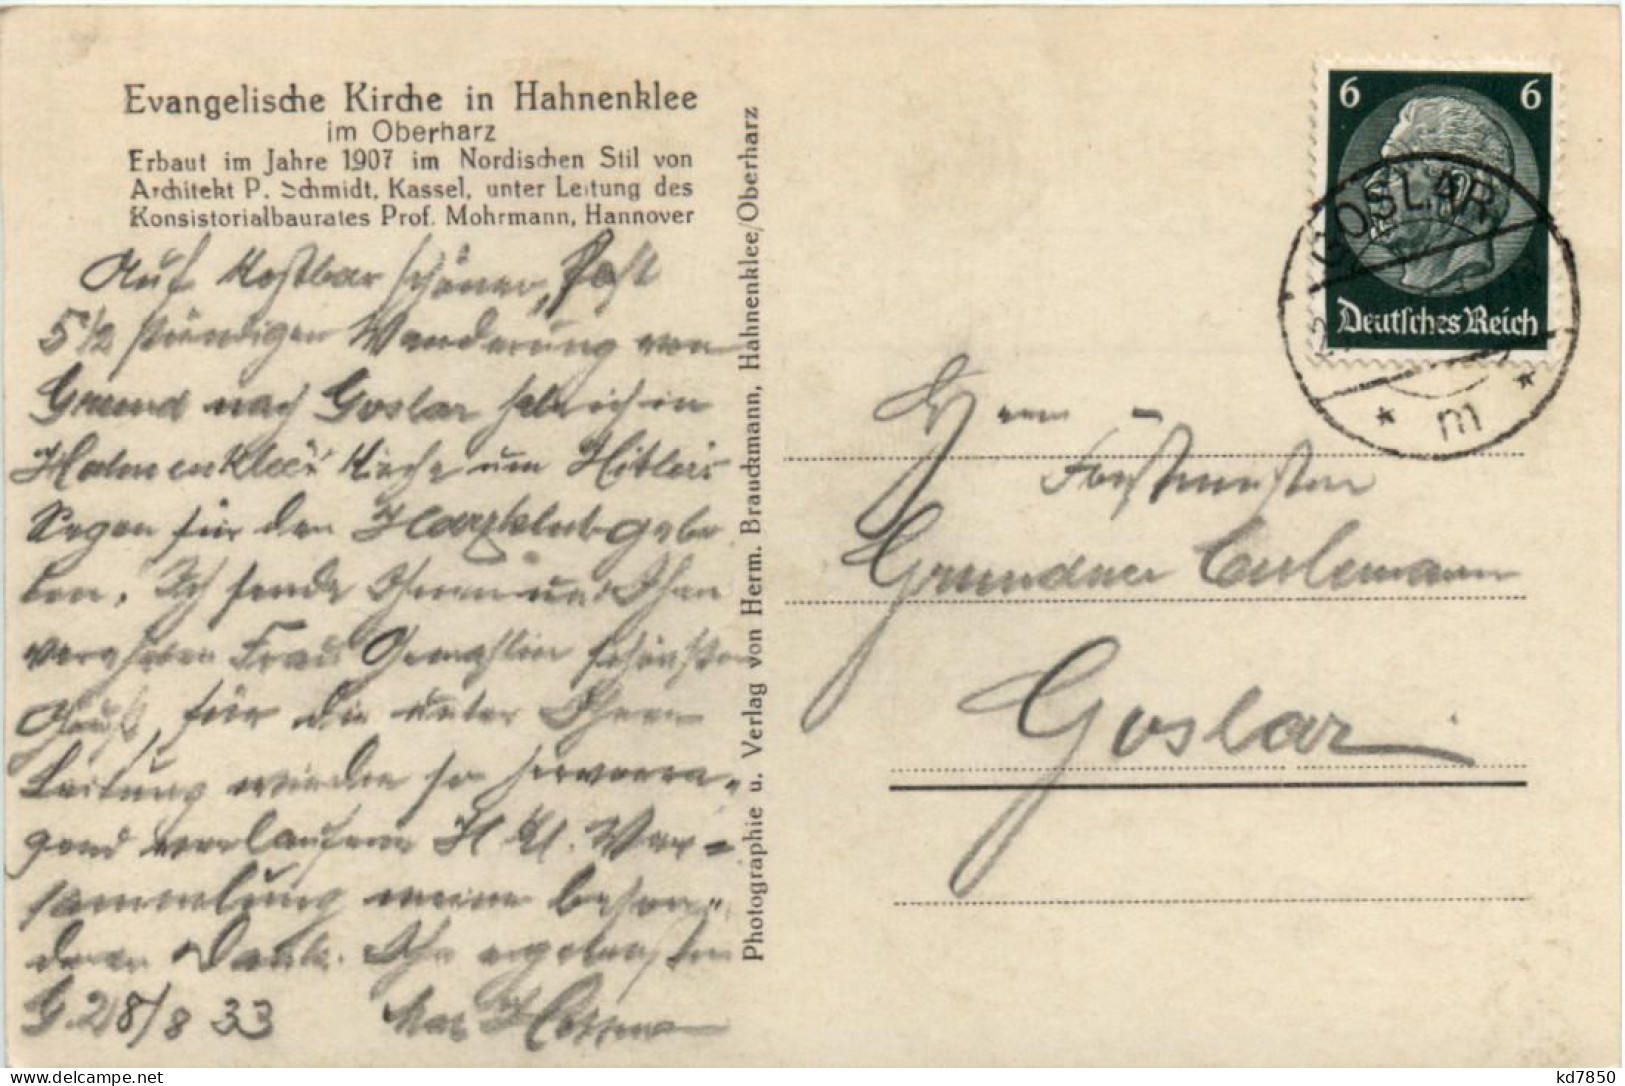 Evangelische Kirche in Hahnenklee
im Oberharz
Erbaut im Jahre 1907 im Nordischen Stil von
Architekt P. Schmidt, Kassel, unter Leitung des
Konsistorialbaurates Prof. Mohrmann, Hannover
Auf kostbar schöner, fast
5½ stündigen Wanderung von
Grund nach Goslar habe ich in
Hahnenklee's Kirche um Hitler's
Segen für den Harzklub gebe
ten. Ich sende Ihnen und Ihrer
verehrten Frau Gemahlin schönsten
Gruß, für die unter Ihrer
Leitung wieder so hervorra-
gend verlaufene H. Kl. Ver=
sammlung meinen beson-
deren Dank. Ihr ergebenster
G. 28/8 33
Max
Photographie u. Verlag von Herm. Brauckmann, Hahnenklee/Oberharz
6 6
Deutsches Reich
GOSLAR
* m *
Herrn
Forstmeister
Grundner Culemann
Goslar
kd7850